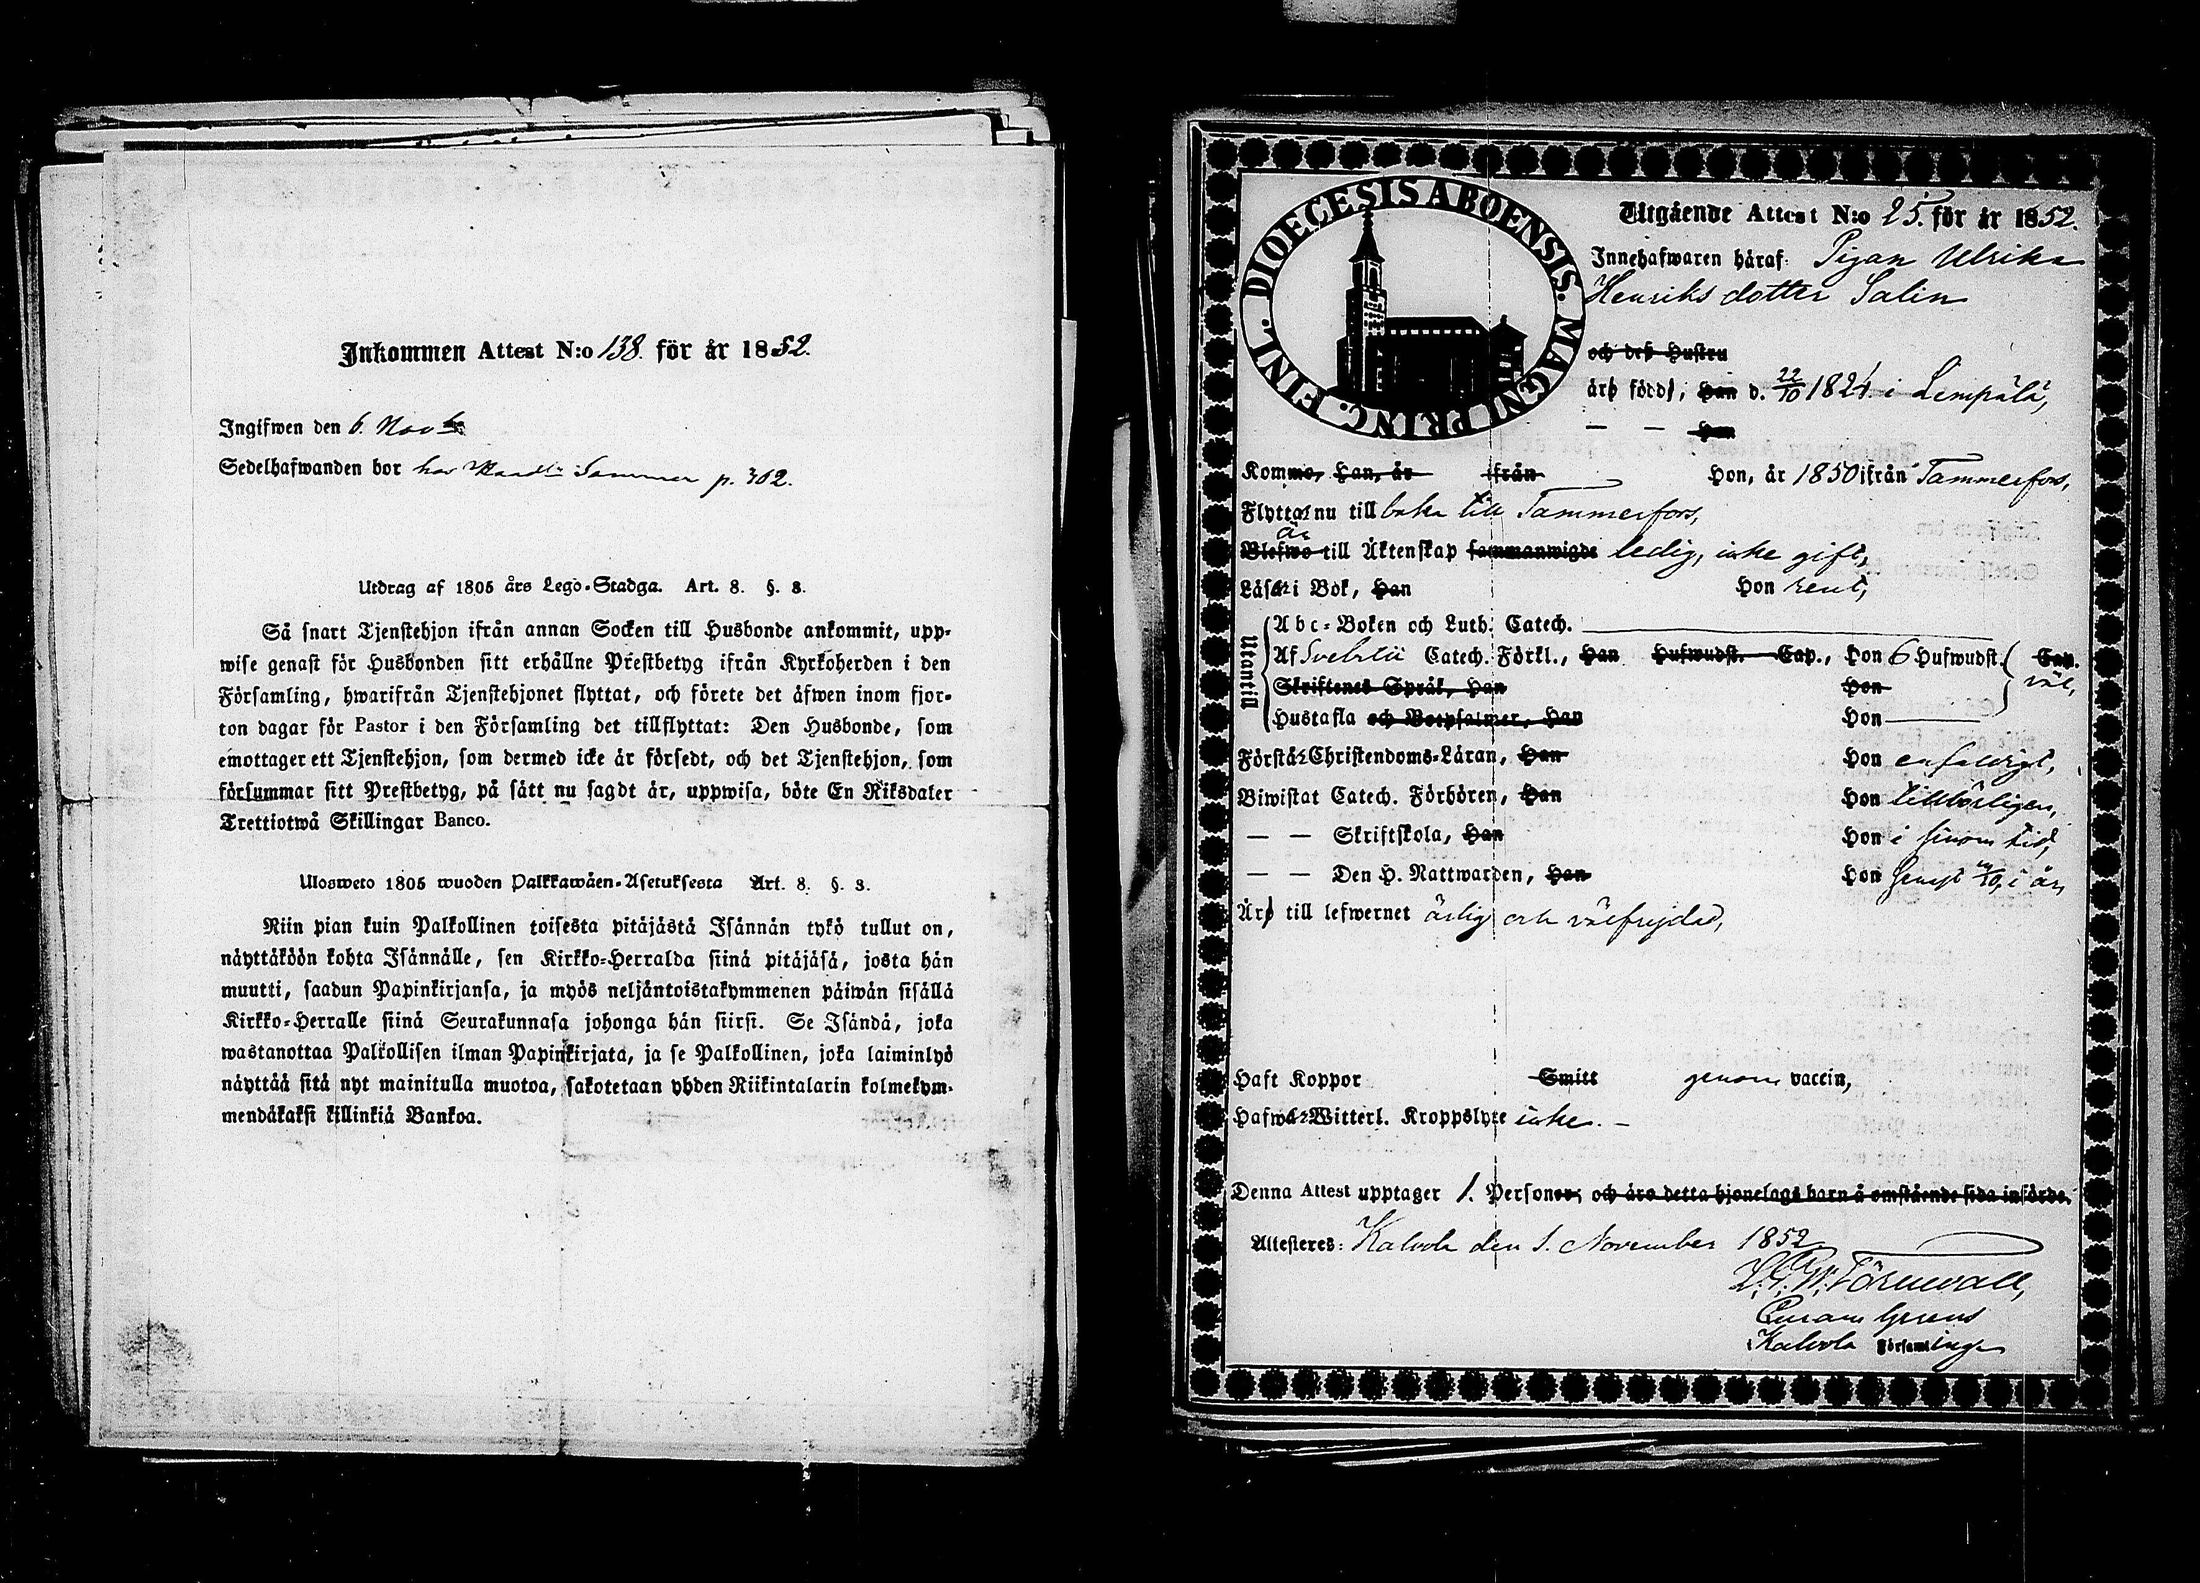 Inkommen Attest N:o 138. för år 1852.
Ingifwen den 6. Nov
Sedelhafwanden bor hos p. 302.
Utdrag af 1805 års Lego-Stadga. Art. 8. §. 3.
Så snart Tjenstehjon ifrån annan Socken till Husbonde ankommit, upp-
wise genast för Husbonden sitt erhållne Prestbetyg ifrån Kyrkoherden i den
Församling, hwarifrån Tjenstehjonet flyttat, och förete det äfwen inom fjor-
ton dagar för Pastor i den Församling det tillflyttat: Den Husbonde, som
emottager ett Tjenstehjon, som dermed icke är försedt, och det Tjenstehjon, som
försummar sitt Prestbetyg, på sätt nu sagdt är, uppwisa, böte En Riksdaler
Trettiotwå Skillingar Banco.
Ulosweto 1805 wuoden Palkkawäen-Asetuksesta Art. 8. §. 3.
Niin pian kuin Palkollinen toisesta pitäjästä Isännän tykö tullut on,
näyttäköön kohta Isännälle, sen Kirkko-Herralda siinä pitäjäsä, josta hän
muutti, saadun Papinkirjansa, ja myös neljäntoistakymmenen päiwän sisällä
Kirkko-Herralle siinä Seurakunnasa johonga hän siirsi. Se Isändä, joka
wastanottaa Palkollisen ilman Papinkirjata, ja se Palkollinen, joka laiminlyö
näyttää sitä nyt mainitulla muotoa, sakotetaan yhden Riikintalarin kolmekym-
mendäkaksi killinkiä Bankoa.
DIOECESIS ABOENSIS. MAGNI PRINC. FINL.
Utgående Attest N:o 25. för år 1852.
Innehafwaren häraf: Pigan Ulrika
Henriksdotter Salin
och dess Hustru
äro född, Han d. 22/10 1824 i Lempälä,
— — Hon
Komme, Han, år ifrån Hon, år 1850 ifrån Tammerfors,
Flyttar nu till baka till Tammerfors,
är
Blefwo till Äktenskap sammanwigde ledig, icke gift,
Läser i Bok, Han Hon rent,
Utantill
Abc-Boken och Luth. Catech.
Af Svebelii Catech. Förkl., Han Hufwudst. Cap., Hon 6 Hufwudst. Cap.
väl,
Skriftenes Språk, Han Hon
Hustafla och Botpsalmer, Han Hon
Förstår Christendoms-Läran, Han Hon enfaldigt,
Biwistat Catech. Förhören, Han Hon tillbörligen,
— — Skriftskola, Han Hon i sinom tid,
— — Den H. Nattwarden, Han Hon senast /10 i år,
Äro till lefwernet ärlig och välfrejdad,
Haft Koppor Smitt genom vaccin,
Hafwer Witterl. Kroppslyte icke. —
Denna Attest upptager 1. Personer, och äro detta hjonelags barn å omstående sida införde.
Attesteres: Kalvola den 1. November 1852
Törnwall,
Curam gerens
Kalvola Församlings